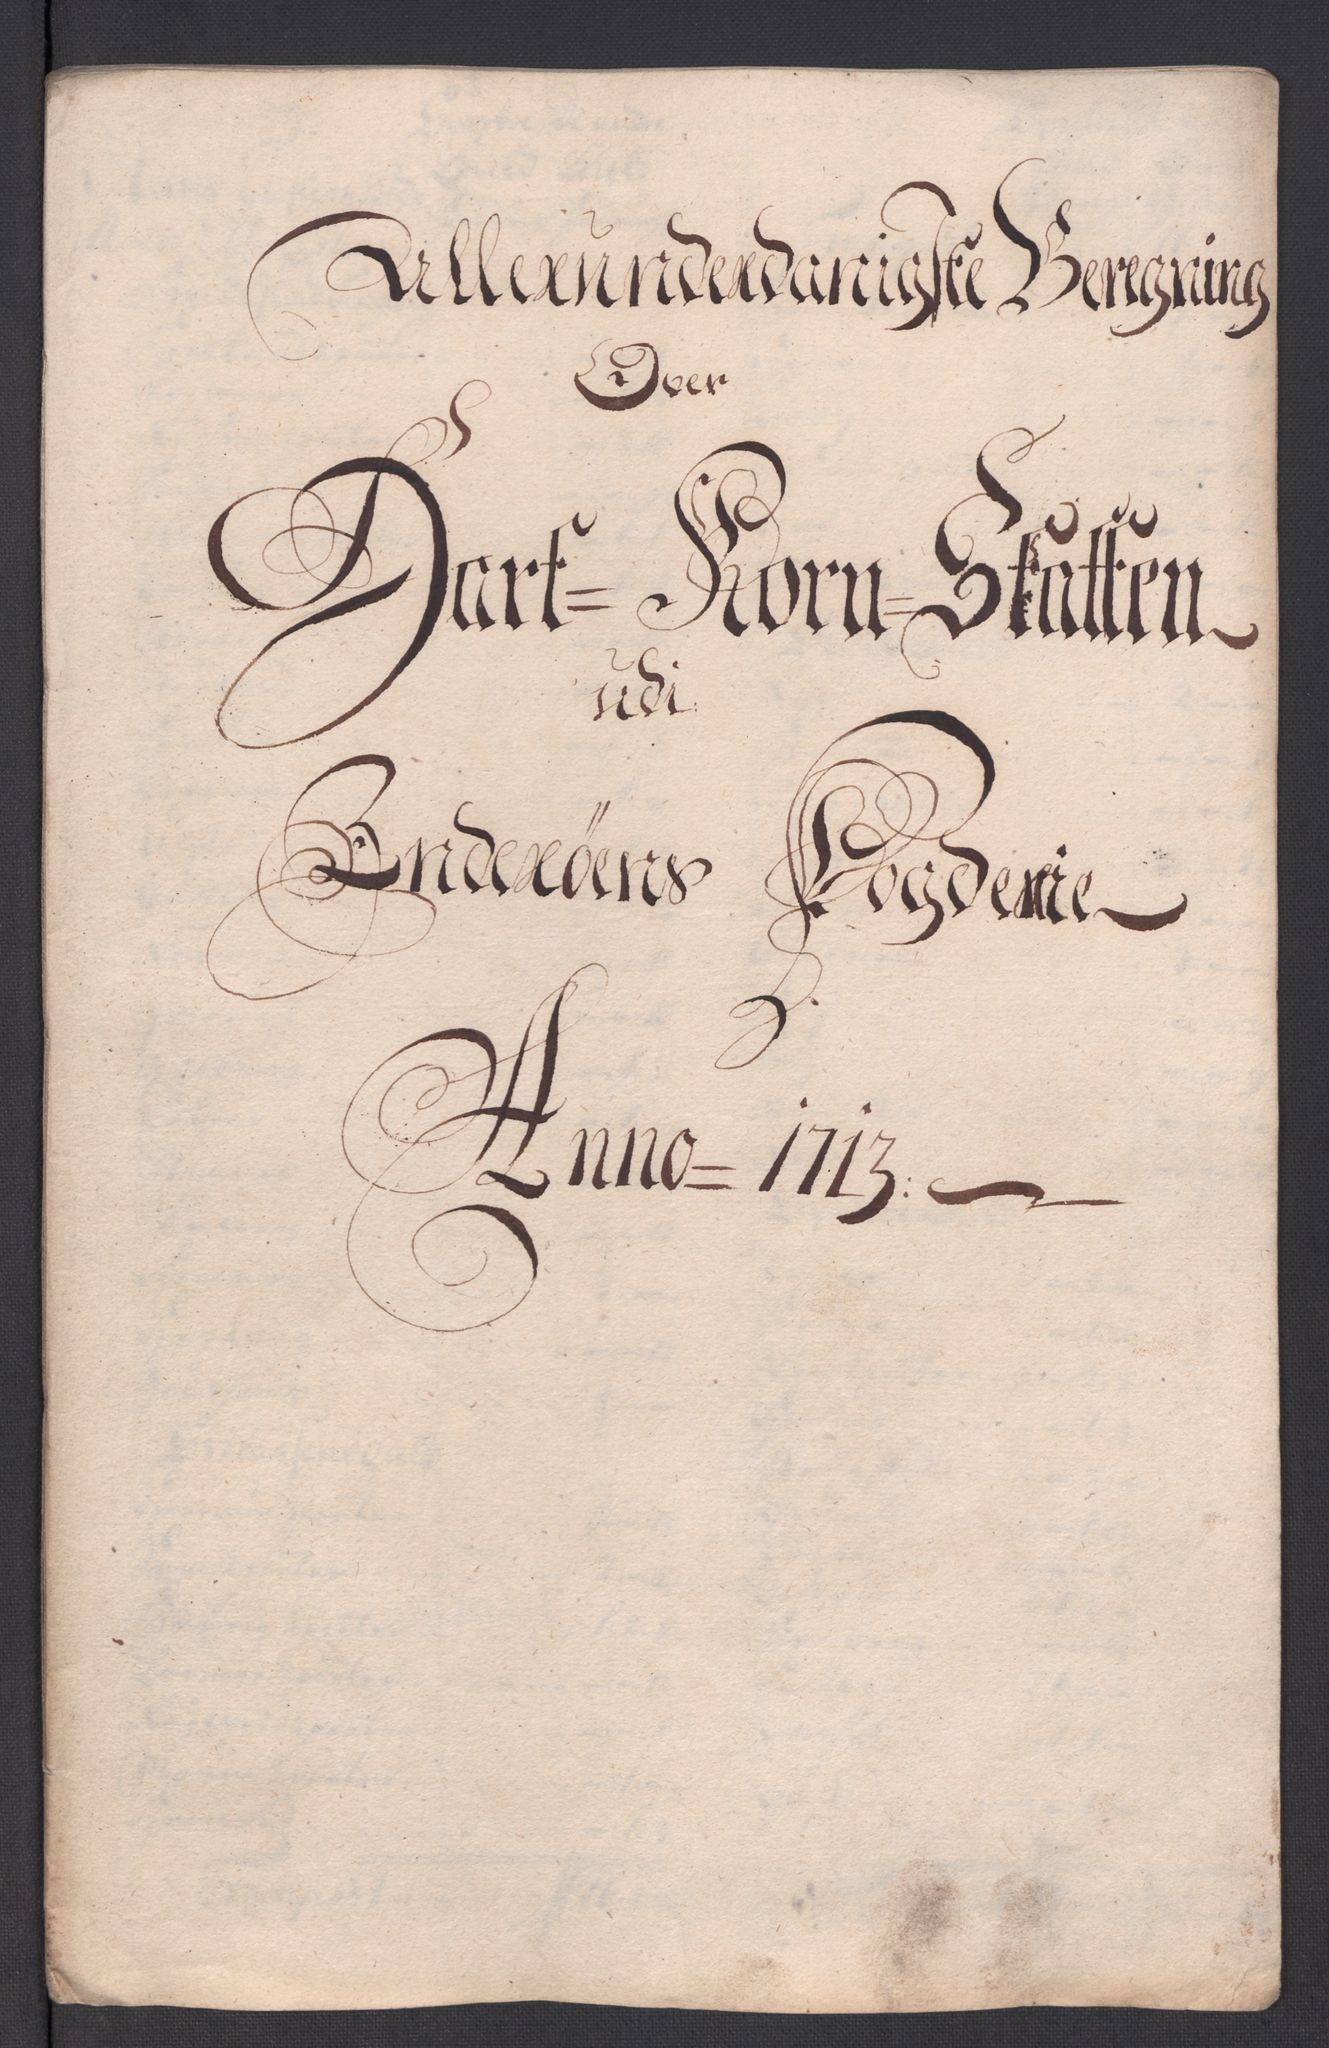 Allerunderdanigste Beregning
Over
Hart= Korn= Skatten
udi
Inderöens Fogderie
Anno= 1713: